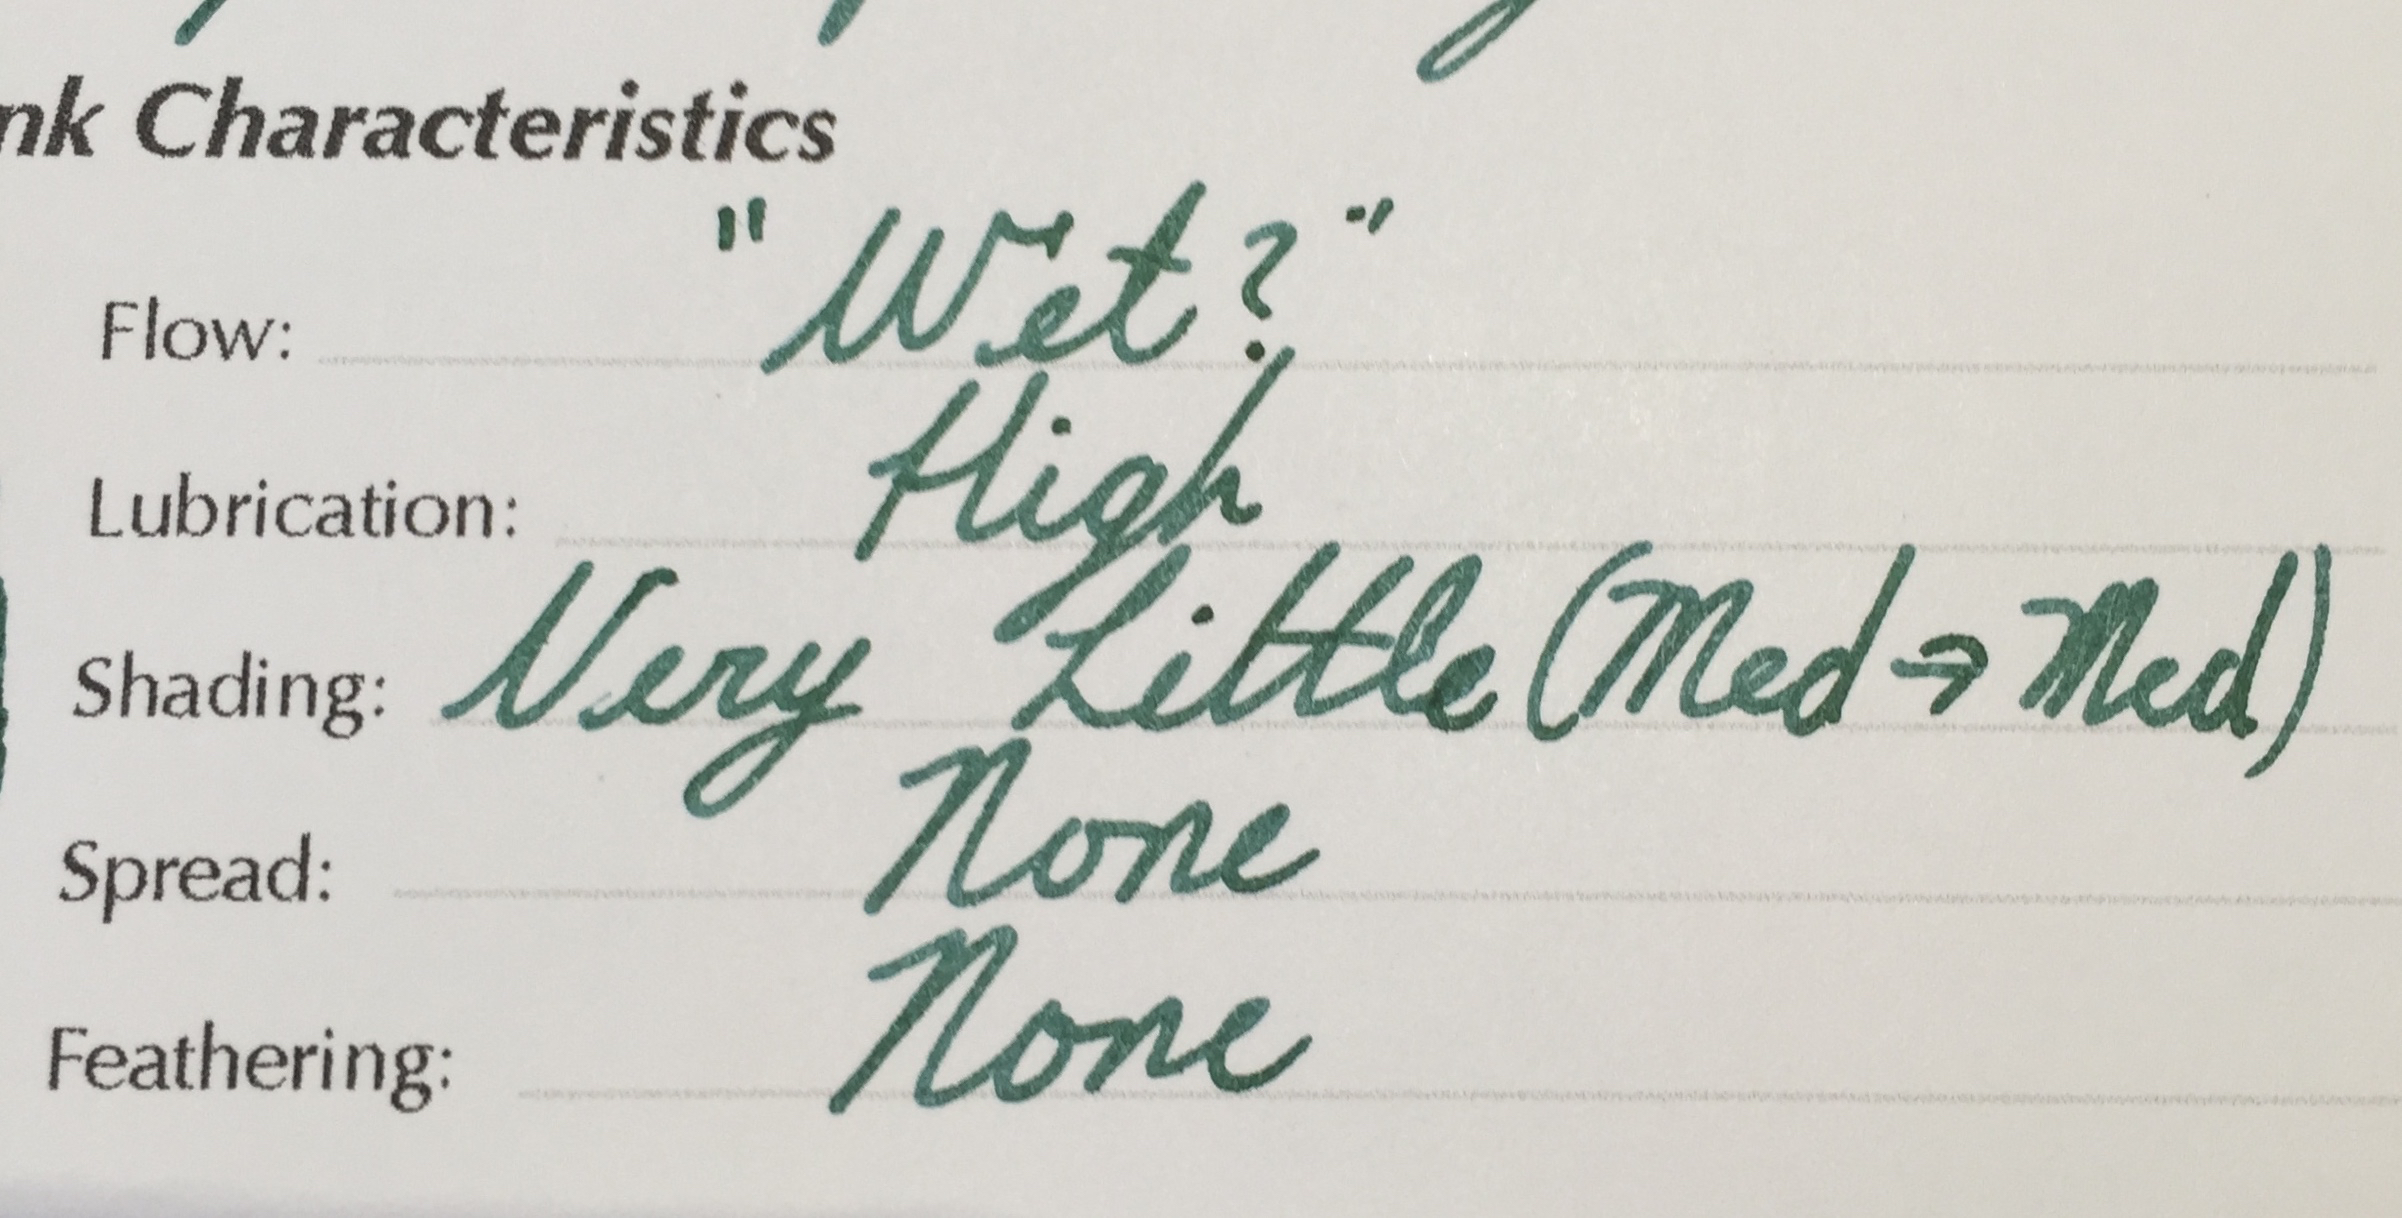 nk Characteristics
Flow: "Wet?"
Lubrication: High
Shading: Very Little (Med → Med)
Spread: None
Feathering: None